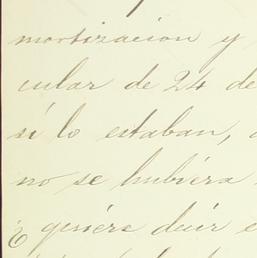 mortizacion y
cular de 24 de
si lo estaban,
no se hubiera
quiere decir e